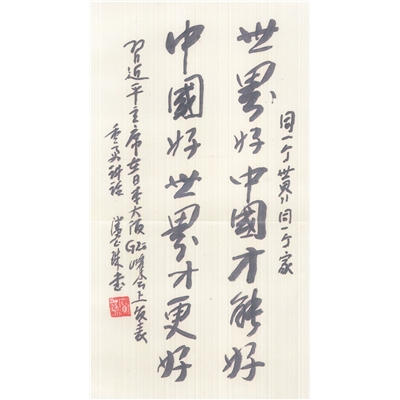 同一个世界同一个家
世界好中國才能好
中國好世界才更好
習近平主席在日本大阪G20峰会上发表
重要讲话